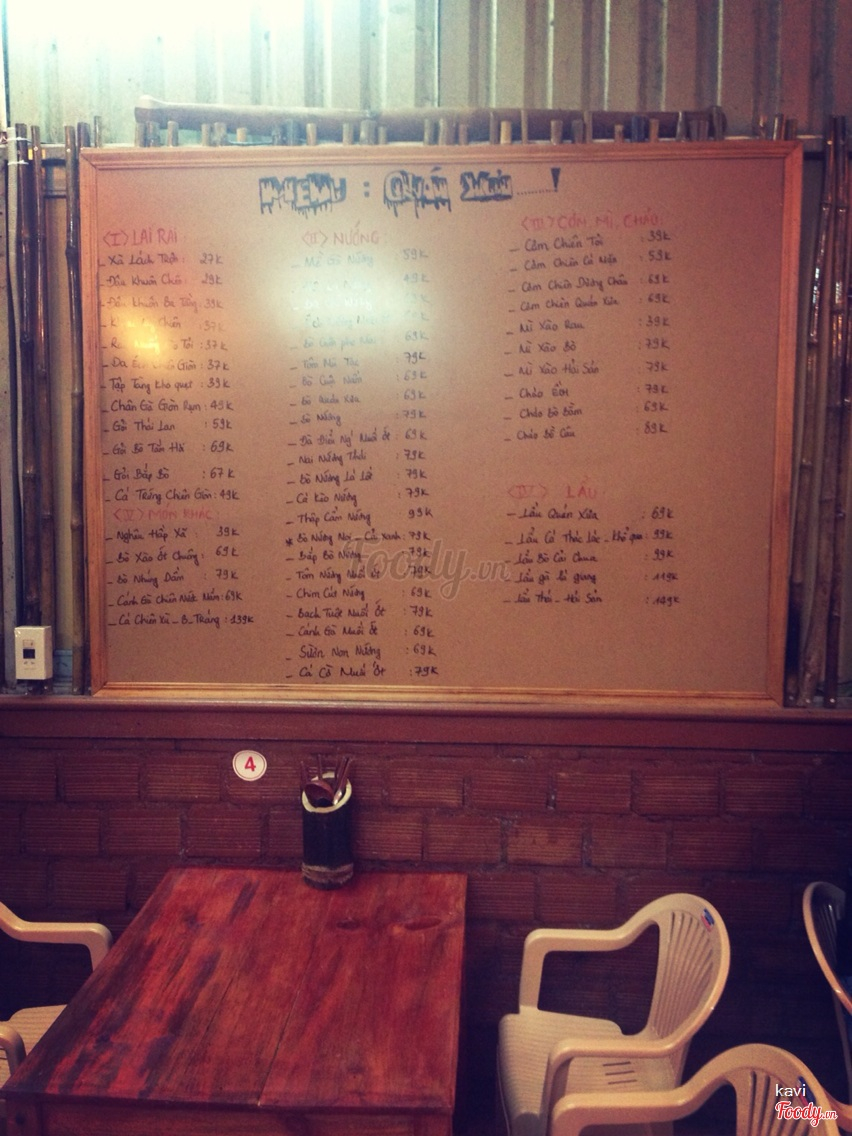 MENU : QUÁN XƯA ........!
<I> LAI RAI :
_ Xà Lách Trộn : 27K
_ Đậu Khuôn Chiên : 29K
_ Đậu Khuôn : 39K
Chiên : 37K
Tỏi : 37K
Giòn : 37K
_ Tập Tàng kho quẹt : 39K
_ Chân Gà Giòn Rụm : 49K
_ Gỏi Thái Lan : 59K
_ Gỏi Bò : 69K
_ Gỏi Bắp Bò : 67K
_ Cá Trứng Chiên Giòn : 49K
<V> MÓN KHÁC :
_ Nghêu Hấp Xã : 39K
_ Bò Xào Ớt Chuông : 69K
_ Bò Nhúng Dấm : 79K
_ Cánh Gà Chiên Nước Mắm : 69K
_ Cá Chiên Xù _ B_Tráng : 139K
<II> NƯỚNG :
_ Mề Gà Nướng : 59K
49K
: 69K
: 79K
_ Bò Cuộn Nấm : 69K
_ Bò Quán Xưa : 69K
_ Bò Nướng : 79K
_ Đà Điểu Ng' Muối Ớt : 69K
_ Nai Nướng : 79K
_ Bò Nướng Lá Lốt : 79K
_ Cá Kèo Nướng : 79K
_ Thập Cẩm Nướng : 99K
* Bò Nướng Mọi _ Cải Xanh : 79K
_ Bắp Bò Nướng : 79K
_ Tôm Nướng Muối Ớt : 79K
_ Chim Cút Nướng : 69K
_ Bạch Tuộc Muối Ớt : 79K
_ Cánh Gà Muối Ớt : 69K
_ Sườn Non Nướng : 69K
_ Cá Muối Ớt : 79K
<III> CƠM, MÌ, CHÁO :
_ Cơm Chiên Tỏi : 39K
_ Cơm Chiên Cá Mặn : 59K
_ Cơm Chiên Dương Châu : 69K
_ Cơm Chiên Quán Xưa : 69K
_ Mì Xào Rau : 39K
_ Mì Xào Bò : 79K
_ Mì Xào Hải Sản : 79K
_ Cháo : 79K
_ Cháo Bò Bằm : 69K
_ Cháo Bồ Câu : 89K
<IV> LẨU :
_ Lẩu Quán Xưa : 69K
_ Lẩu Cá Thác Lác _ khổ qua : 99K
_ Lẩu Bò Cải Chua : 99K
_ Lẩu gà lá giang : 119K
_ Lẩu Thái _ Hải Sản : 149K
Foody.vn
4
kavi
Foody.vn